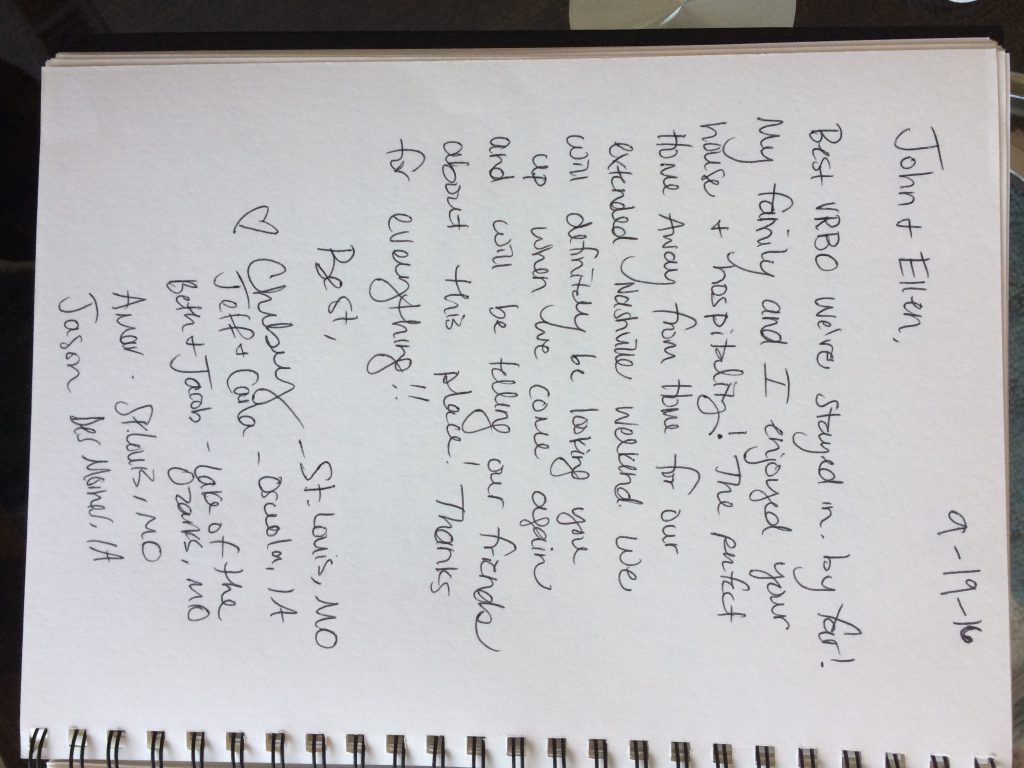 9-19-16
John + Ellen,
Best VRBO we've stayed in. by far!
My family and I enjoyed your
house + hospitality! The perfect
Home Away from Home for our
extended Nashville weekend. We
will definitely be looking you
up when we come again
and will be telling our friends
about this place! Thanks
for everything!!
Best,
♡ Chubuy - St. Louis, MO
Jeff + Carla - Osceola, IA
Beth + Jacob - Lake of the
Ozarks, MO
Amar. St. Louis, MO
Jason Des Moines, IA